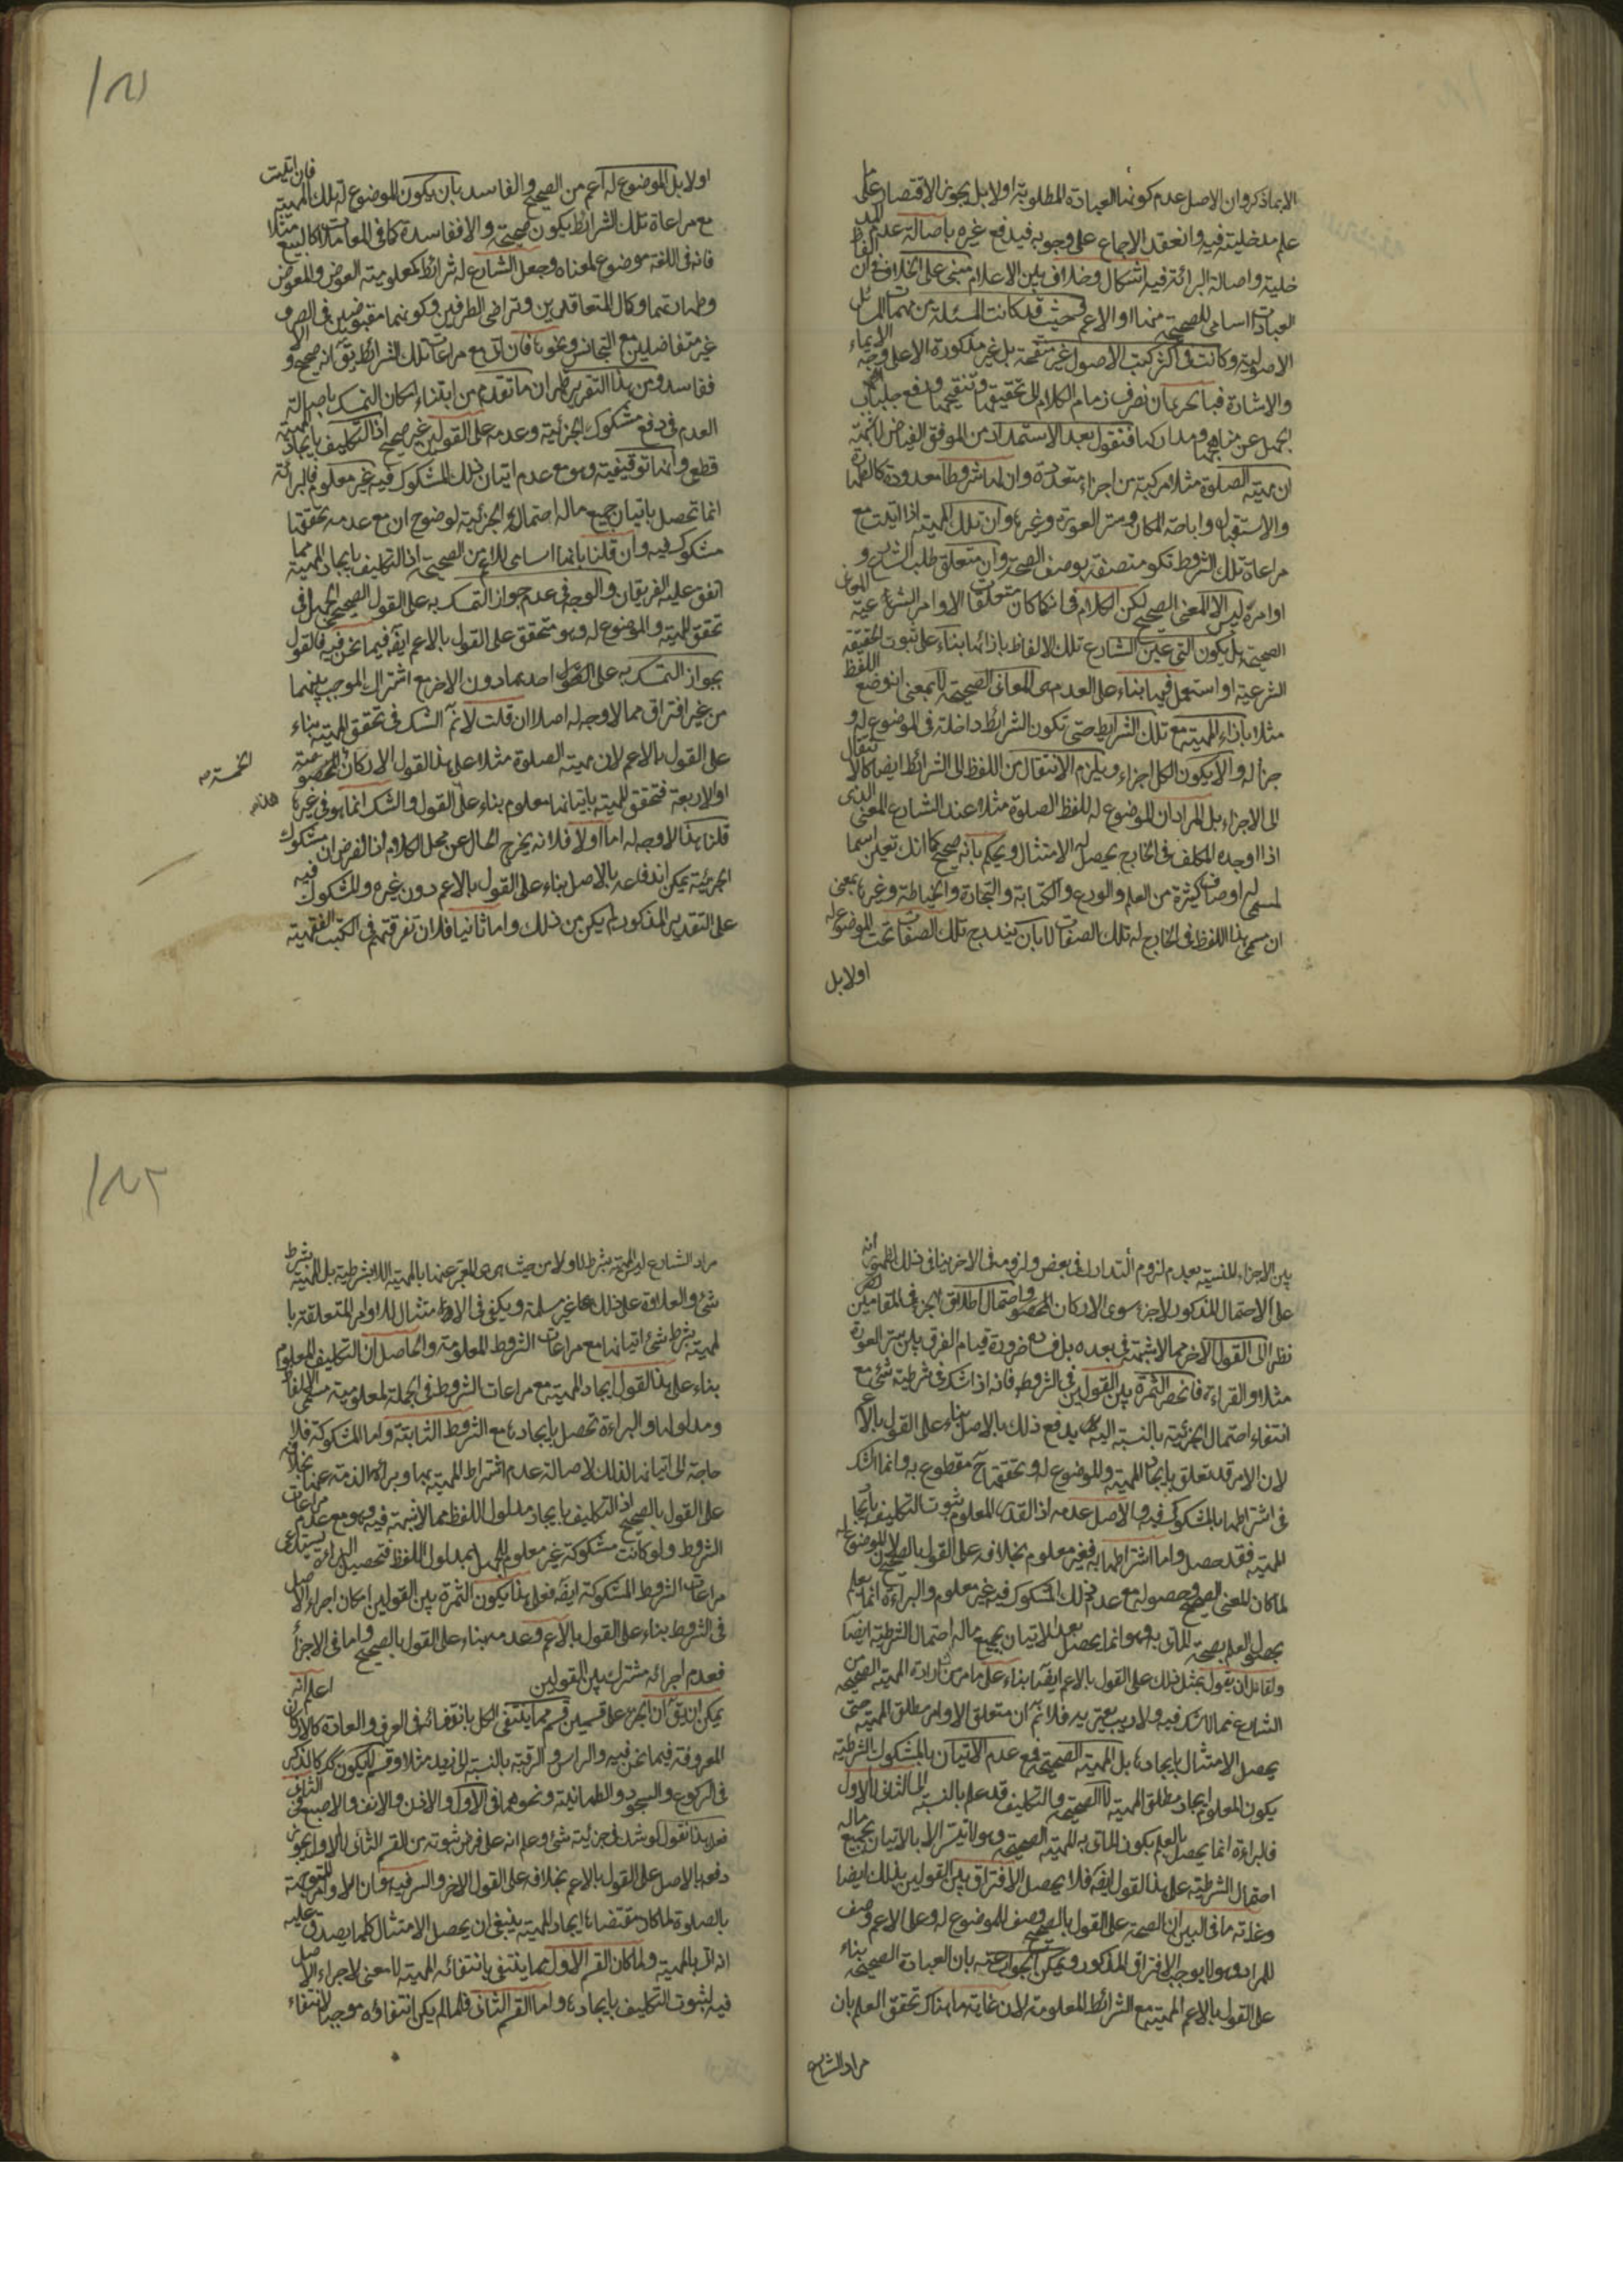 الا بما ذكر وان الاصل عدم كونها العبادة المطلوبة اولا بل يجوز الاقتصار على ما
علم مدخليته فيه وانعقد الاجماع على وجوبه فيدفع غيره باصالة عدم المد
خلية واصالة البرائة فيه اشكال وخلاف بين الاعلام مبنى على الخلاف في ان الفاظ
العبادات اسامى للصحيحة منها او الاعم فحيث قد كانت المسئلة من مهمات المسائل
الاصولية وكانت في اكثر كتب الاصول غير منقحة بل غير مذكورة الا على وجه الايماء
والاشارة فبالحرى ان نصرف زمام الكلام الى تحقيقها وتنقيحها ودفع جلباب
الجهل عن مناهجها ومداركها فنقول بعد الاستمداد من الموفق الفياض للنعمة
ان مهية الصلوة مثلا مركبة من اجزاء متعددة وان لها شروطا معدودة كالطهارة
والاستقبال واباحة المكان وستر العورة وغيرها وان تلك المهية اذا اتيت مع
مراعاة تلك الشروط تكون متصفة بوصف الصحة وان متعلق طلب الشارع و
اوامره ليس الا المعنى الصحيح لكن الكلام في انه كما كان متعلقات الاوامر الشرعية المعانى
الصحيحة بل يكون التى عين الشارع تلك الالفاظ بازائها بناء على ثبوت الحقيقة
الشرعية او استعمل فيها بناء على العدم هى المعانى الصحيحة لا بمعنى انه وضع اللفظ
مثلا بازاء المهية مع تلك الشرايط حتى تكون الشرائط داخلة في الموضوع له و
جزأ له والا يكون الكل اجزاء ويلزم الانتقال من اللفظ الى الشرائط ايضا كالانتقال
الى الاجزاء بل المراد ان الموضوع له للفظ الصلوة مثلا عند الشارع المعنى الذى
اذا اوجده المكلف في الخارج يحصل له الامتثال ويحكم بانه صحيح كما انك تعين اسما
لمسمى له اوصاف كثيرة من العلم والورع والكتابة والتجارة والخياطة وغيرها بمعنى
ان مسمى هذا اللفظ في الخارج له تلك الصفات لا بان يندرج تلك الصفات تحت الموضوع له
اولا بل
اولا بل الموضوع له اعم من الصحيح والفاسد بان يكون الموضوع له تلك المهية فان اتيت
مع مراعاة تلك الشرائط يكون صحيحة والا ففاسدة كما في المعاملات كالبيع مثلا
فانه في اللغة موضوع لمعناه وجعل الشارع له شرائط كمعلومية العوض والمعوض
وطهارتهما وكمال المتعاقدين وتراضى الطرفين وكونهما مقبوضين في الصرف
غير متفاضلين مع التجانس ونحوها فان اتى مع مراعات تلك الشرائط يق انه صحيح و الا
ففاسد ومن هذا التقرير ظهر ان ما تقدم من ابتناء امكان التمسك باصالة
العدم في دفع مشكوك الجزئية وعدمه على القولين غير صحيح اذ التكليف بايجاد المهية
قطعى وانها توقيفية وهو مع عدم اتيان ذلك المشكوك فيه غير معلوم فالبرائة
انما تحصل باتيان جميع ماله احتمال الجزئية لوضوح ان مع عدمه تحققها
مشكوك فيه وان قلنا بانها اسامى للاعم من الصحيحة اذ التكليف بايجاد المهية مما
اتفق عليه الفريقان والوجه في عدم جواز التمسك به على القول الصحيحى الجهل في
تحقق المهية والموضوع له وهو متحقق على القول بالاعم ايضا فيما نحن فيه فالقول
بجواز التمسك به على القول احدهما دون الاخر مع اشتراك الموجب بينهما
من غير افتراق مما لا وجه له اصلا ان قلت لا نم الشك في تحقق المهية بناء
على القول بالاعم لان مهية الصلوة مثلا على هذا القول الاركان المخصوصة
الخمسة صح
او الاربعة فتحقق المهية باتيانها معلوم بناء على القول والشك انما هو في غيرها
هذا صح
قلنا هذا لا وجه له اما اولا فلانه يخرج الحال عن محل الكلام اذ الفرض ان مشكوك
الجزئية يمكن اندفاعه بالاصل بناء على القول بالاعم دون غيره والمشكوك فيه
على التقدير المذكور لم يكن من ذلك واما ثانيا فلان تفرقتهم في الكتب الفقهية
بين الاجزاء للنسيتة بعدم لزوم التدارك في بعض ولزومه في الاخر ينافى ذلك لظهور انه
على الاحتمال المذكور لا جزء سوى الاركان المخصوصة واحتمال اطلاق الجزء في المقامين
نظرا الى القول الاخر مما لا شبهة في بعده بل فساده ضرورة قيام الفرق بين ستر العورة
مثلا والقراءة فانحصر الثمرة بين القولين في الشروط فانه اذا شك في شرطية شئ مع
انتفاء احتمال الجزئية بالنسبة اليه يدفع ذلك بالاصل بناء على القول بالاعم
لان الامر قد تعلق بايجاد المهية والموضوع له وتحققها ح مقطوع به وانما الشك
في اشتراطها بالمشكوك فيه والاصل عدمه اذ القدر المعلوم ثبوت التكليف بايجاد
المهية فقد حصل واما اشتراطها به فغير معلوم بخلافه على القول بالصحيح لان الموضوع له
لما كان المعنى الصحيح وحصوله مع عدم ذلك المشكوك فيه غير معلوم والبراءة انما
يحصل العلم بصحة المأتى به وهو انما يحصل بعد الاتيان بجميع ماله احتمال الشرطية ايضا
ولقائل ان يقول بمثل ذلك على القول بالاعم ايضا بناء على ما مر من ارادة المهية الصحيحة من
الشارع مما لا شك فيه ولا ريب يعتريه فلا نم ان متعلق الاوامر مطلق المهية حتى
يحصل الامتثال بايجادها بل المهية الصحيحة فمع عدم الاتيان بالمشكوك الشرطية
يكون المعلوم ايجاد مطلق المهية لا الصحيحة والتكليف قد علم بالنسبة الى الثانى لا الاول
فالبراءة انما يحصل بالعلم بكون المأتى به المهية الصحيحة وهو لا يتيسر الا بالاتيان بجميع ماله
احتمال الشرطية على هذا القول ايضا فلا يحصل الافتراق بين القولين بذلك ايضا
وغاية ما في البين ان الصحة على القول بالصحيح وصف للموضوع له وعلى الاعم وصف
للمراد وهو لا يوجب الافتراق المذكور ويمكن الجواب عنه بان العبادة الصحيحة بناء
على القول بالاعم المهية مع الشرائط المعلومة لان غاية ما هناك تحقق العلم بان
مراد الشارع
مراد الشارع ليس المهية بشرط لا ولا من حيث هى هى المعبر عنها بالمهية اللابشرطية بل المهية بشرط
شئ والعلاوة على ذلك غير مسلمة ويكفى في الامتثال للاوامر المتعلقة با
لمهية بشرط شئ اتيانها مع مراعات الشروط المعلومة والحاصل ان التكليف المعلوم
بناء على هذا القول ايجاد المهية مع مراعات الشروط في الجملة لمعلومية مسمى الالفاظ
ومدلولها والبراءة تحصل بايجادها مع الشروط الثابتة واما المشكوكة فلا
حاجة الى اتيانها لذلك لاصالة عدم اشتراط المهية بها وبرائة الذمة عنها بخلافه
على القول بالصحيح اذ التكليف بايجاد مدلول اللفظ مما لا شبهة فيه وهو مع عدم مراعات
الشروط ولو كانت مشكوكة غير معلوم للجهل بمدلول اللفظ فتحصيل البراءة يستدعى
مراعات الشروط المشكوكة ايضا فعلى هذا يكون الثمرة بين القولين امكان اجراء الاصل
في الشروط بناء على القول بالاعم وعدمه بناء على القول بالصحيح واما في الاجزاء
فعدم اجرائه مشترك بين القولين اعلم انه
يمكن ان يق ان الجزء على قسمين قسم مما ينتفى الكل بانتفائه في العرف والعادة كالاركان
المعروفة فيما نحن فيه والراس والرقبة بالنسبة الى زيد مثلا وقسم لا يكون كك كالذكر
في الركوع والسجود والطمانينة ونحوهما في الاول والاذن والانف والاصبع في الثانى
فعلى هذا نقول لو شك في جزئية شئ وعلم انه على فرض ثبوته من القسم الثانى لا الاول يجوز
دفعه بالاصل على القول بالاعم بخلافه على القول الاخر والسر فيه ان الاوامر المتوجهة
بالصلوة لما كان مقتضاها ايجاد المهية ينبغى ان يحصل الامتثال كلما يصدق عليه
انه اتى بالمهية ولما كان القسم الاول مما ينتفى بانتفائه المهية لا معنى لاجراء الاصل
فيه لثبوت التكليف بايجادها واما القسم الثانى فلما لم يكن انتفاؤه موجبا لانتفاء